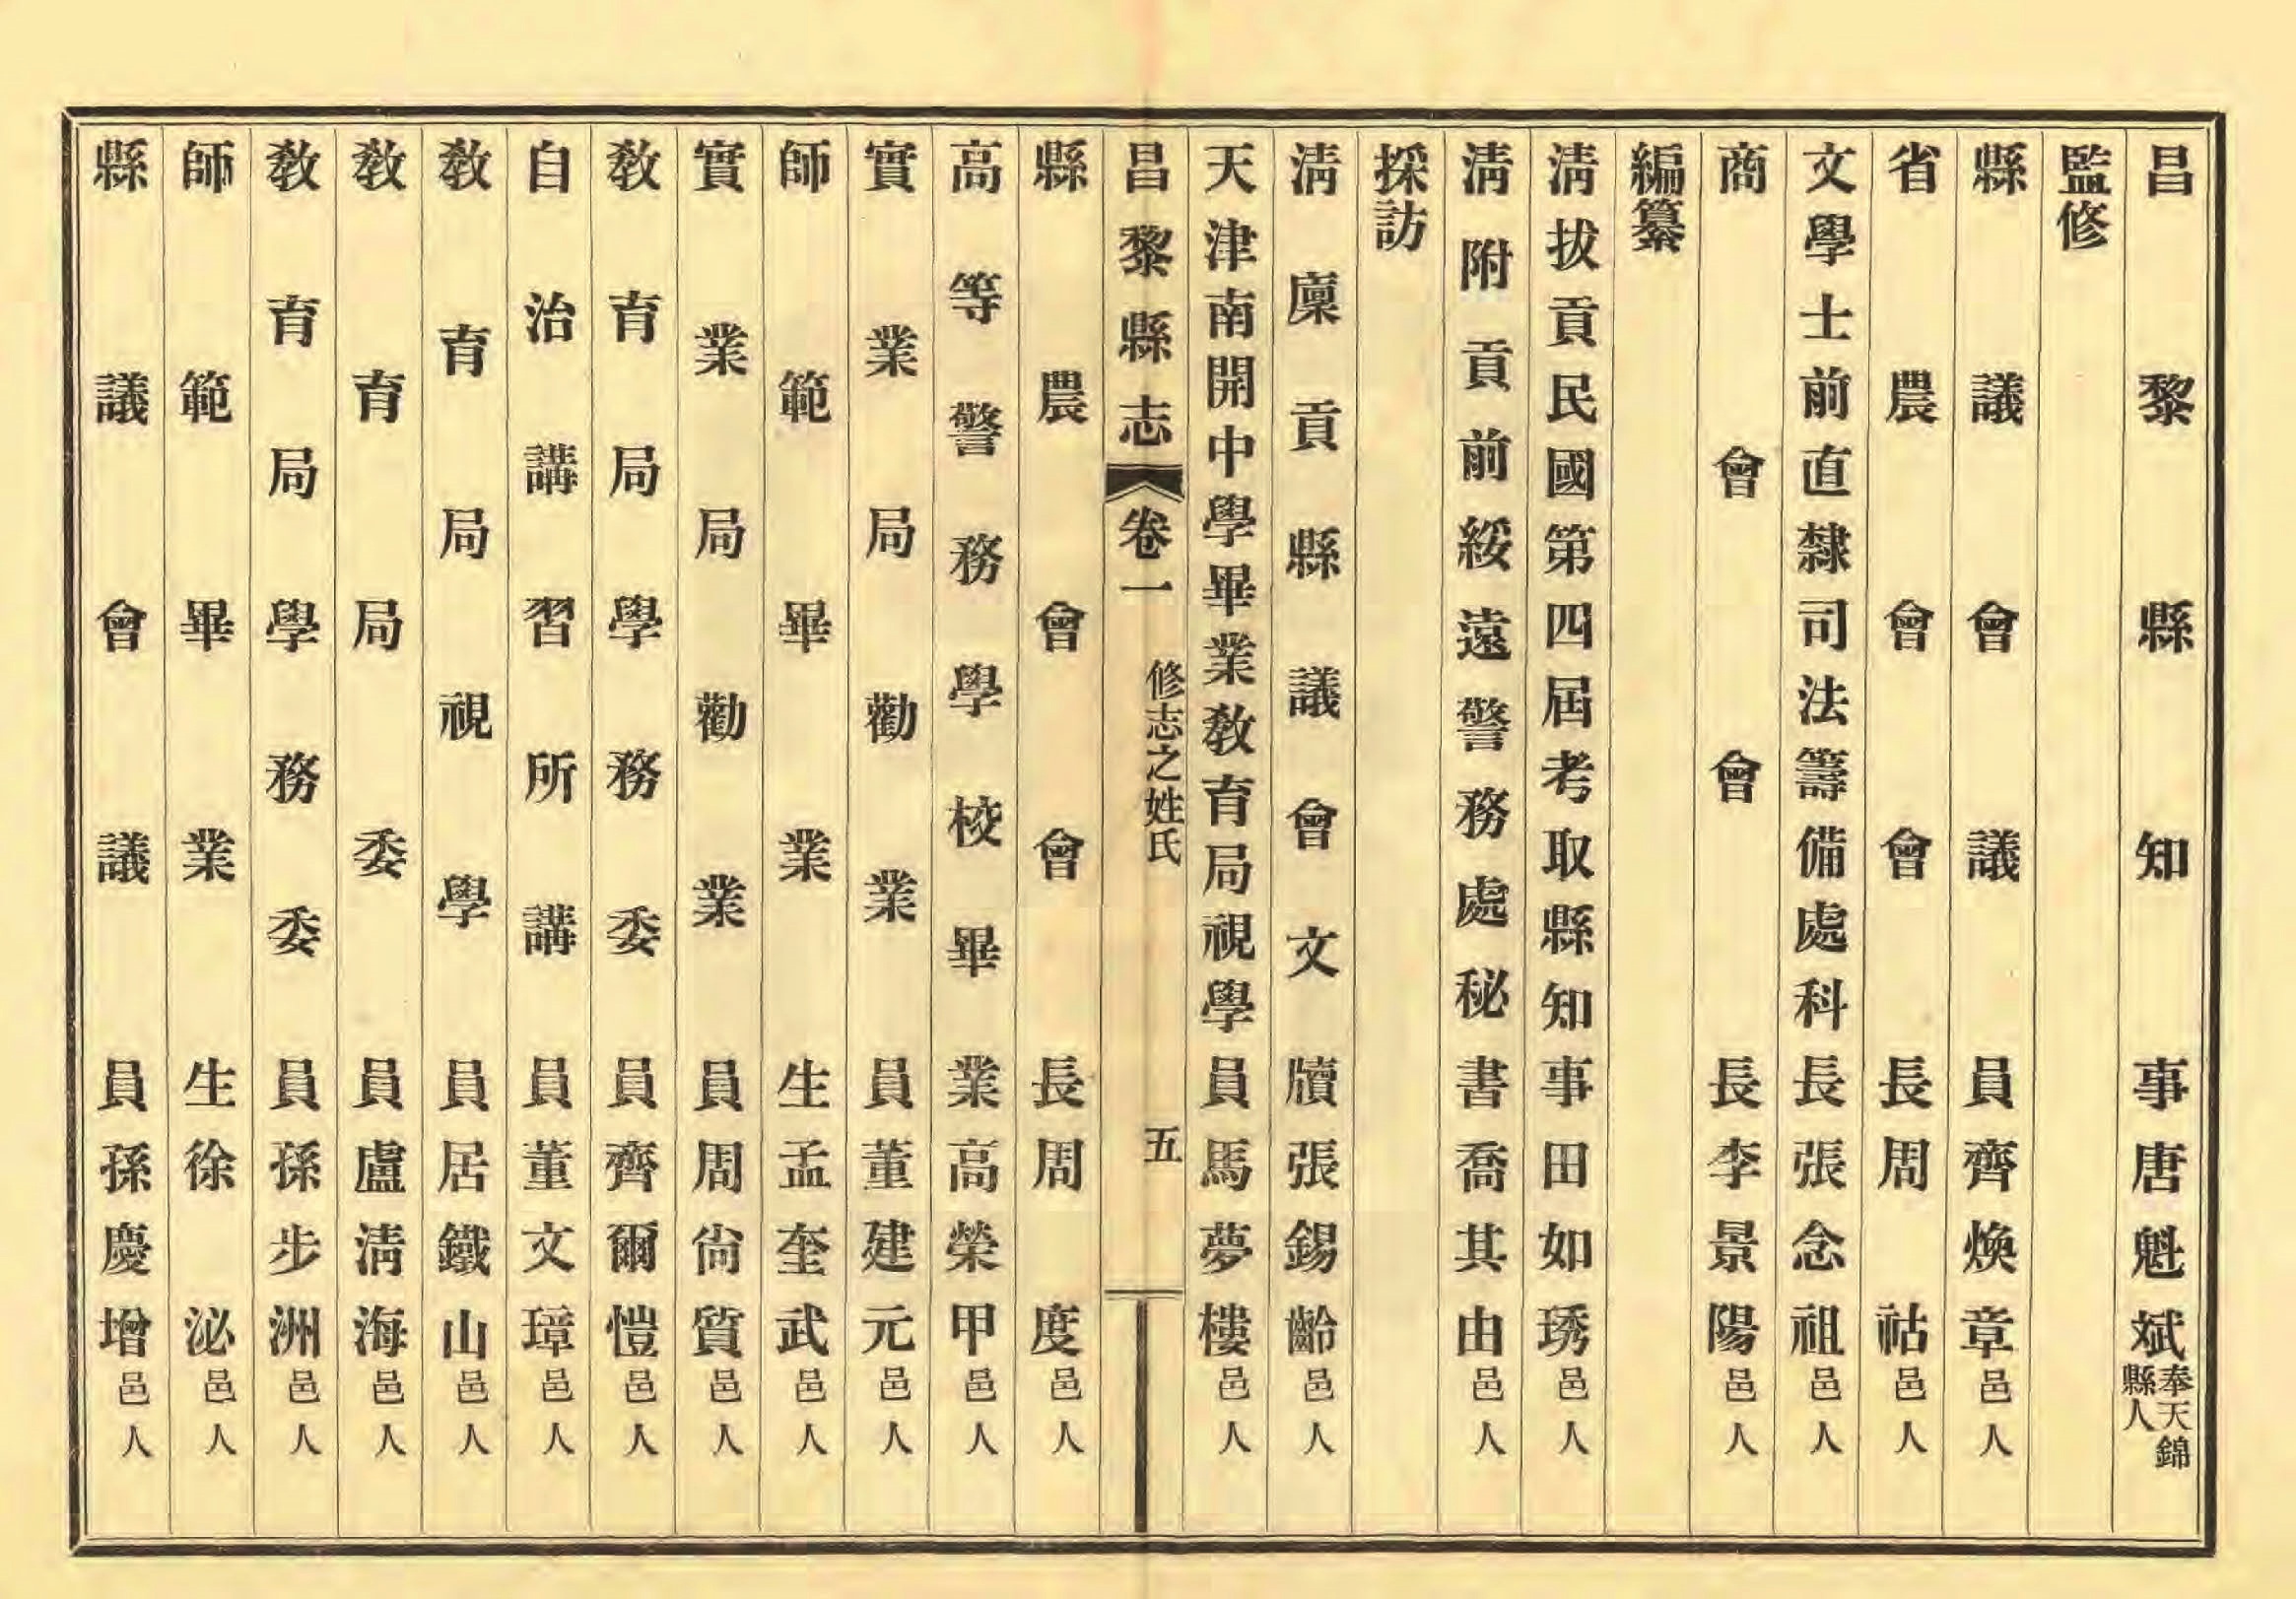 昌黎縣知事唐魁斌奉天錦縣人
監修
縣議會議員齊煥章邑人
省農會會長周祜邑人
文學士前直隸司法籌備處科長張念祖邑人
商會會長李景陽邑人
編纂
淸拔貢民國第四屆考取縣知事田如琇邑人
淸附貢前綏遠警務處秘書喬其由邑人
採訪
淸廩貢縣議會文牘張錫齡邑人
天津南開中學畢業敎育局視學員馬夢樓邑人
昌黎縣志 卷一 修志之姓氏 五
縣農會會長周度邑人
高等警務學校畢業高榮甲邑人
實業局勸業員董建元邑人
師範畢業生孟奎武邑人
實業局勸業員周尙質邑人
敎育局學務委員齊爾愷邑人
自治講習所講員董文璋邑人
敎育局視學員居鐵山邑人
敎育局委員盧淸海邑人
敎育局學務委員孫步洲邑人
師範畢業生徐泌邑人
縣議會議員孫慶增邑人